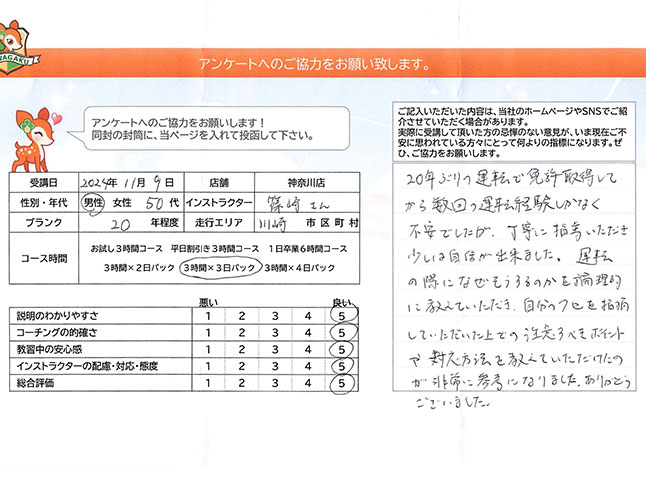 WAGAKU
アンケートへのご協力をお願い致します。
アンケートへのご協力をお願いします！
同封の封筒に、当ページを入れて投函して下さい。
ご記入いただいた内容は、当社のホームページやSNSでご紹
介させていただく場合があります。
実際に受講して頂いた方の忌憚のない意見が、いま現在ご不
安に思われている方々にとって何よりの指標になります。ぜ
ひ、ご協力をお願いします。
受講日 2024年 11月 9日 店舗 神奈川店
性別・年代 男性 女性 50代 インストラクター 篠崎さん
ブランク 20 年程度 走行エリア 川崎 市区町村
コース時間
お試し3時間コース 平日割引き3時間コース 1日卒業6時間コース
3時間×2日パック 3時間×3日パック 3時間×4日パック
悪い 良い
説明のわかりやすさ 1 2 3 4 5
コーチングの的確さ 1 2 3 4 5
教習中の安心感 1 2 3 4 5
インストラクターの配慮・対応・態度 1 2 3 4 5
総合評価 1 2 3 4 5
20年ぶりの運転で免許取得して
から数回の運転経験しかなく
不安でしたが、丁寧に指導いただき
少しは自信が出来ました。運転
の際になぜそうするのかを論理的
に教えていただき、自分のクセを指摘
していただいた上での注意すべきポイント
や対応方法を教えていただけたの
が非常に参考になりました。ありがとう
ございました。